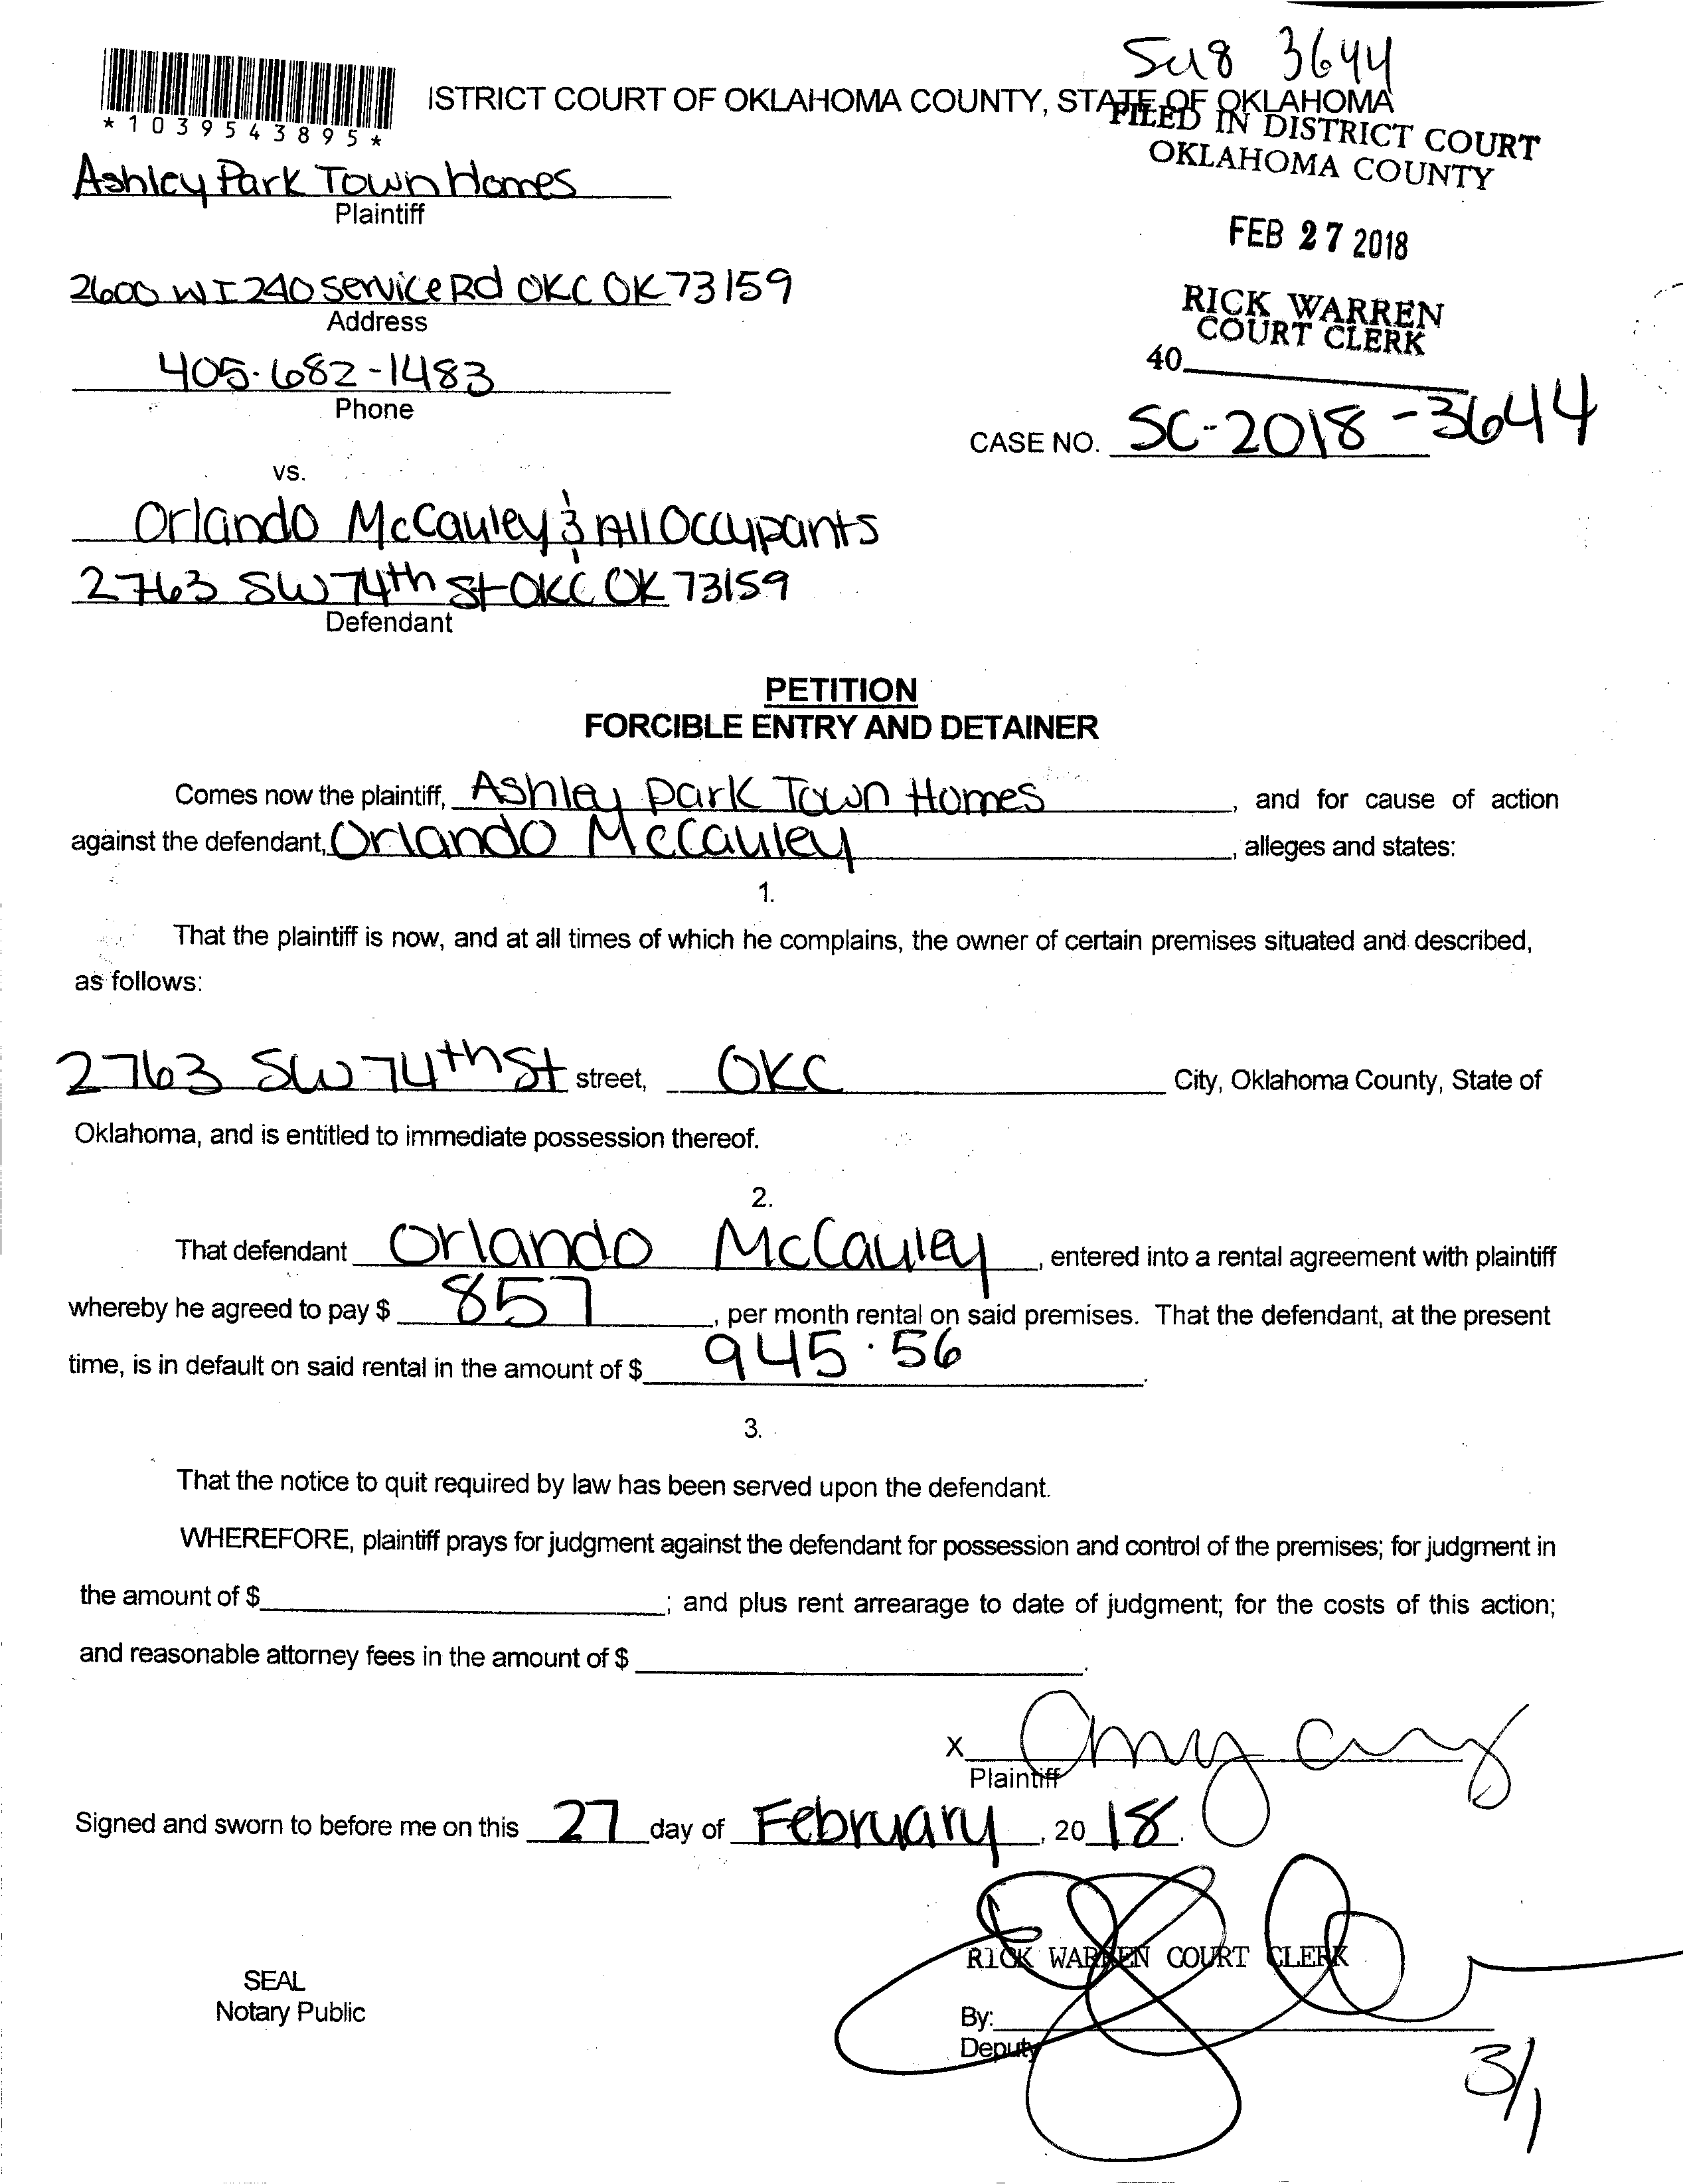 SC18 3644
*1039543895*
ISTRICT COURT OF OKLAHOMA COUNTY, STATE OF OKLAHOMA
FILED IN DISTRICT COURT
OKLAHOMA COUNTY
Ashley Park Town Homes
Plaintiff
FEB 27 2018
2600 W I 240 Service Rd OKC OK 73159
Address
RICK WARREN
COURT CLERK
40
405-682-1483
Phone
CASE NO. SC-2018-3644
vs.
Orlando McCauley & All Occupants
2763 SW 74th St OKC OK 73159
Defendant
PETITION
FORCIBLE ENTRY AND DETAINER
Comes now the plaintiff, Ashley Park Town Homes, and for cause of action
against the defendant, Orlando McCauley, alleges and states:
1.
That the plaintiff is now, and at all times of which he complains, the owner of certain premises situated and described,
as follows:
2763 SW 74th St street, OKC City, Oklahoma County, State of
Oklahoma, and is entitled to immediate possession thereof.
2.
That defendant Orlando McCauley, entered into a rental agreement with plaintiff
whereby he agreed to pay $ 857, per month rental on said premises. That the defendant, at the present
time, is in default on said rental in the amount of $ 945.56.
3.
That the notice to quit required by law has been served upon the defendant.
WHEREFORE, plaintiff prays for judgment against the defendant for possession and control of the premises; for judgment in
the amount of $ ; and plus rent arrearage to date of judgment; for the costs of this action;
and reasonable attorney fees in the amount of $ .
X
Plaintiff
Signed and sworn to before me on this 27 day of February, 20 18.
RICK WARREN COURT CLERK
SEAL
Notary Public
By:
Deputy
3/1